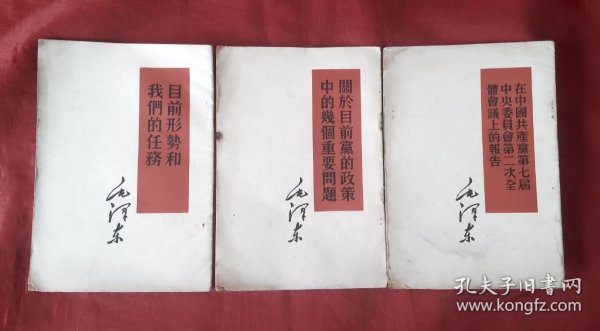 目前形勢和
我們的任務
毛澤东
關於目前黨的政策
中的幾個重要問題
毛澤东
在中國共產黨第七屆
中央委員會第二次全
體會議上的報告
毛澤东
孔夫子旧书网
www.kongfz.com